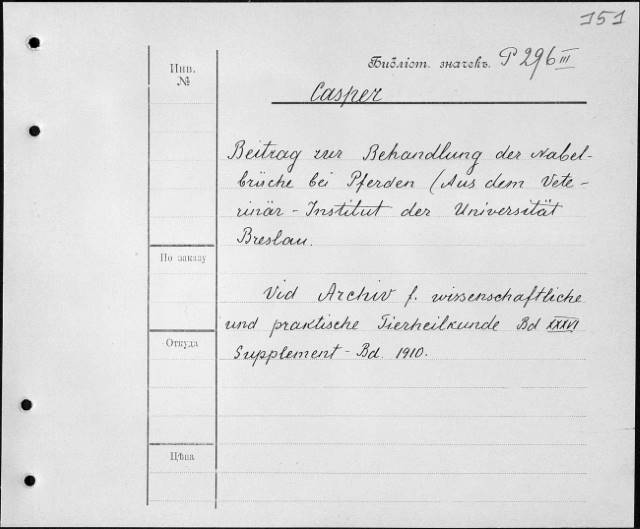 151
Инв.
№
Библіот. значекъ. P 296 III
Casper
Beitrag zur Behandlung der Nabel-
brüche bei Pferden (Aus dem Vete-
rinär - Institut der Universität
Breslau.
По заказу
Vid Archiv f. wissenschaftliche
und praktische Tierheilkunde Bd XXXVI
Откуда
Supplement - Bd. 1910.
Цѣна